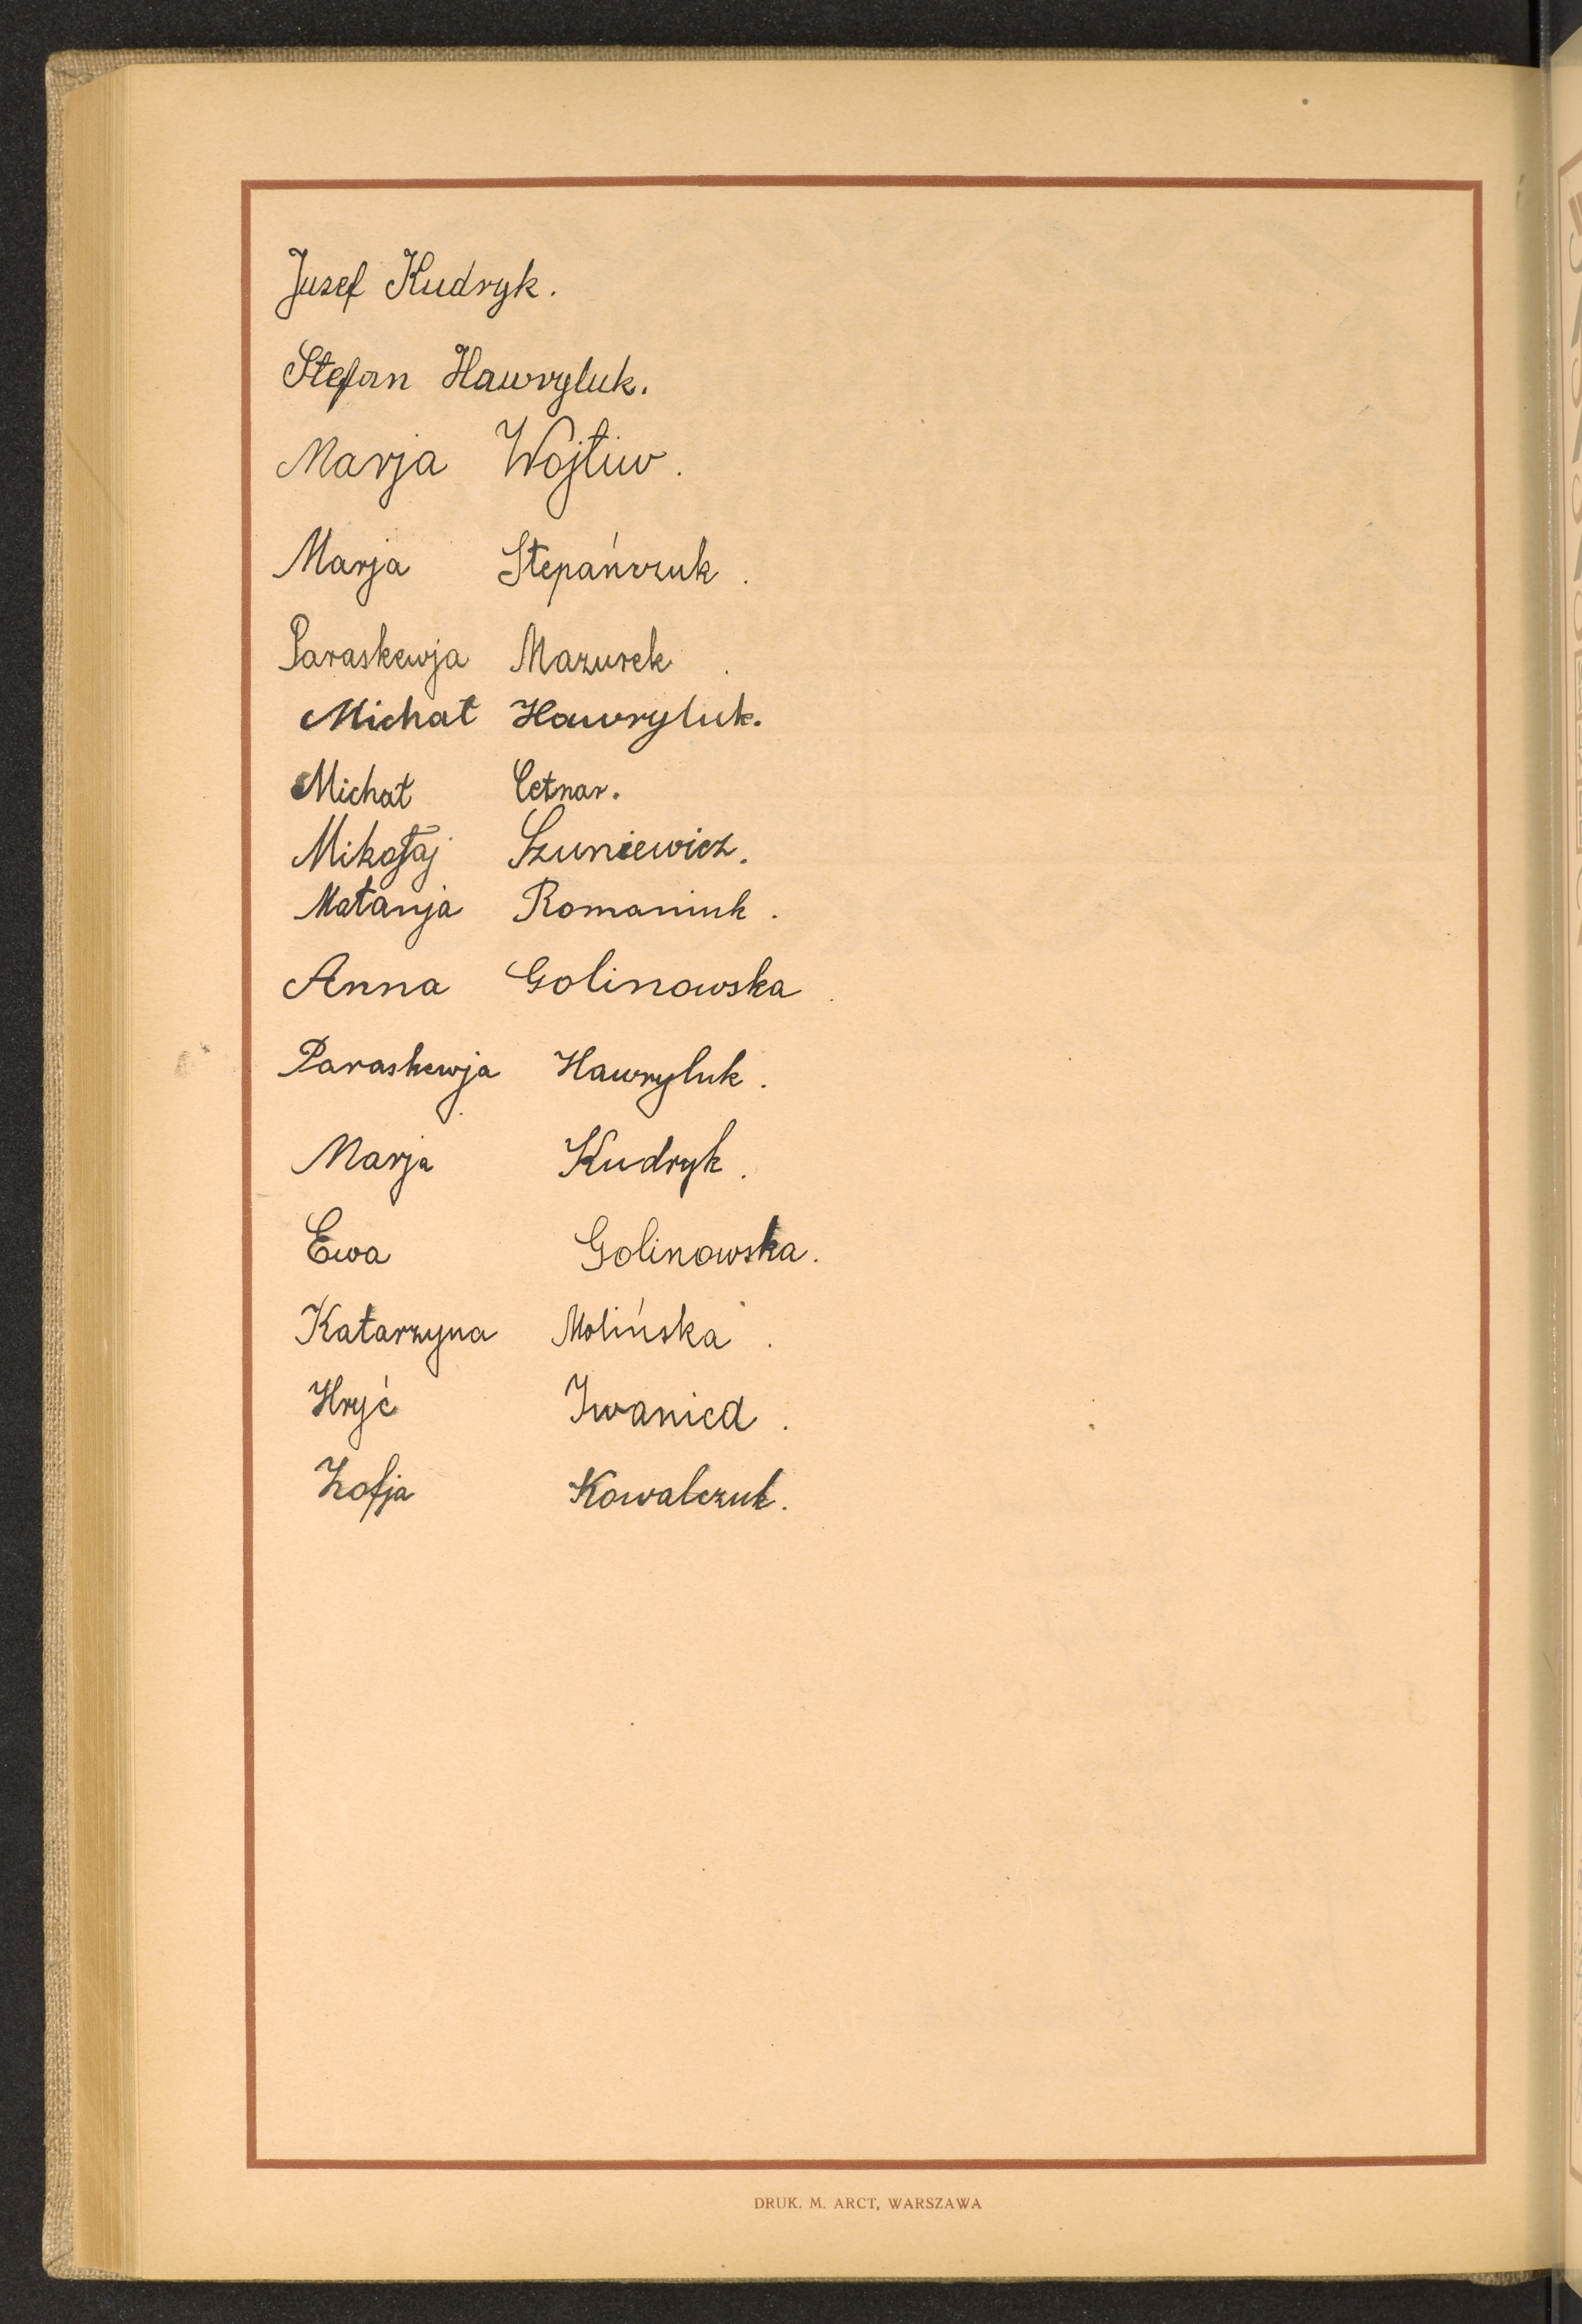 Juzef Kudryk.
Stefan Hawryluk.
Marja Wojtiw.
Marja Stepańczuk.
Paraskewja Mazurek.
Michał Hawryluk.
Michał Cetnar.
Mikołaj Szuniewicz.
Małanja Romaniuk.
Anna Golinowska.
Paraskewja Hawryluk.
Marja Kudryk.
Ewa Golinowska.
Katarzyna Molińska.
Hryć
Zofja Kowalczuk.
DRUK. M. ARCT, WARSZAWA